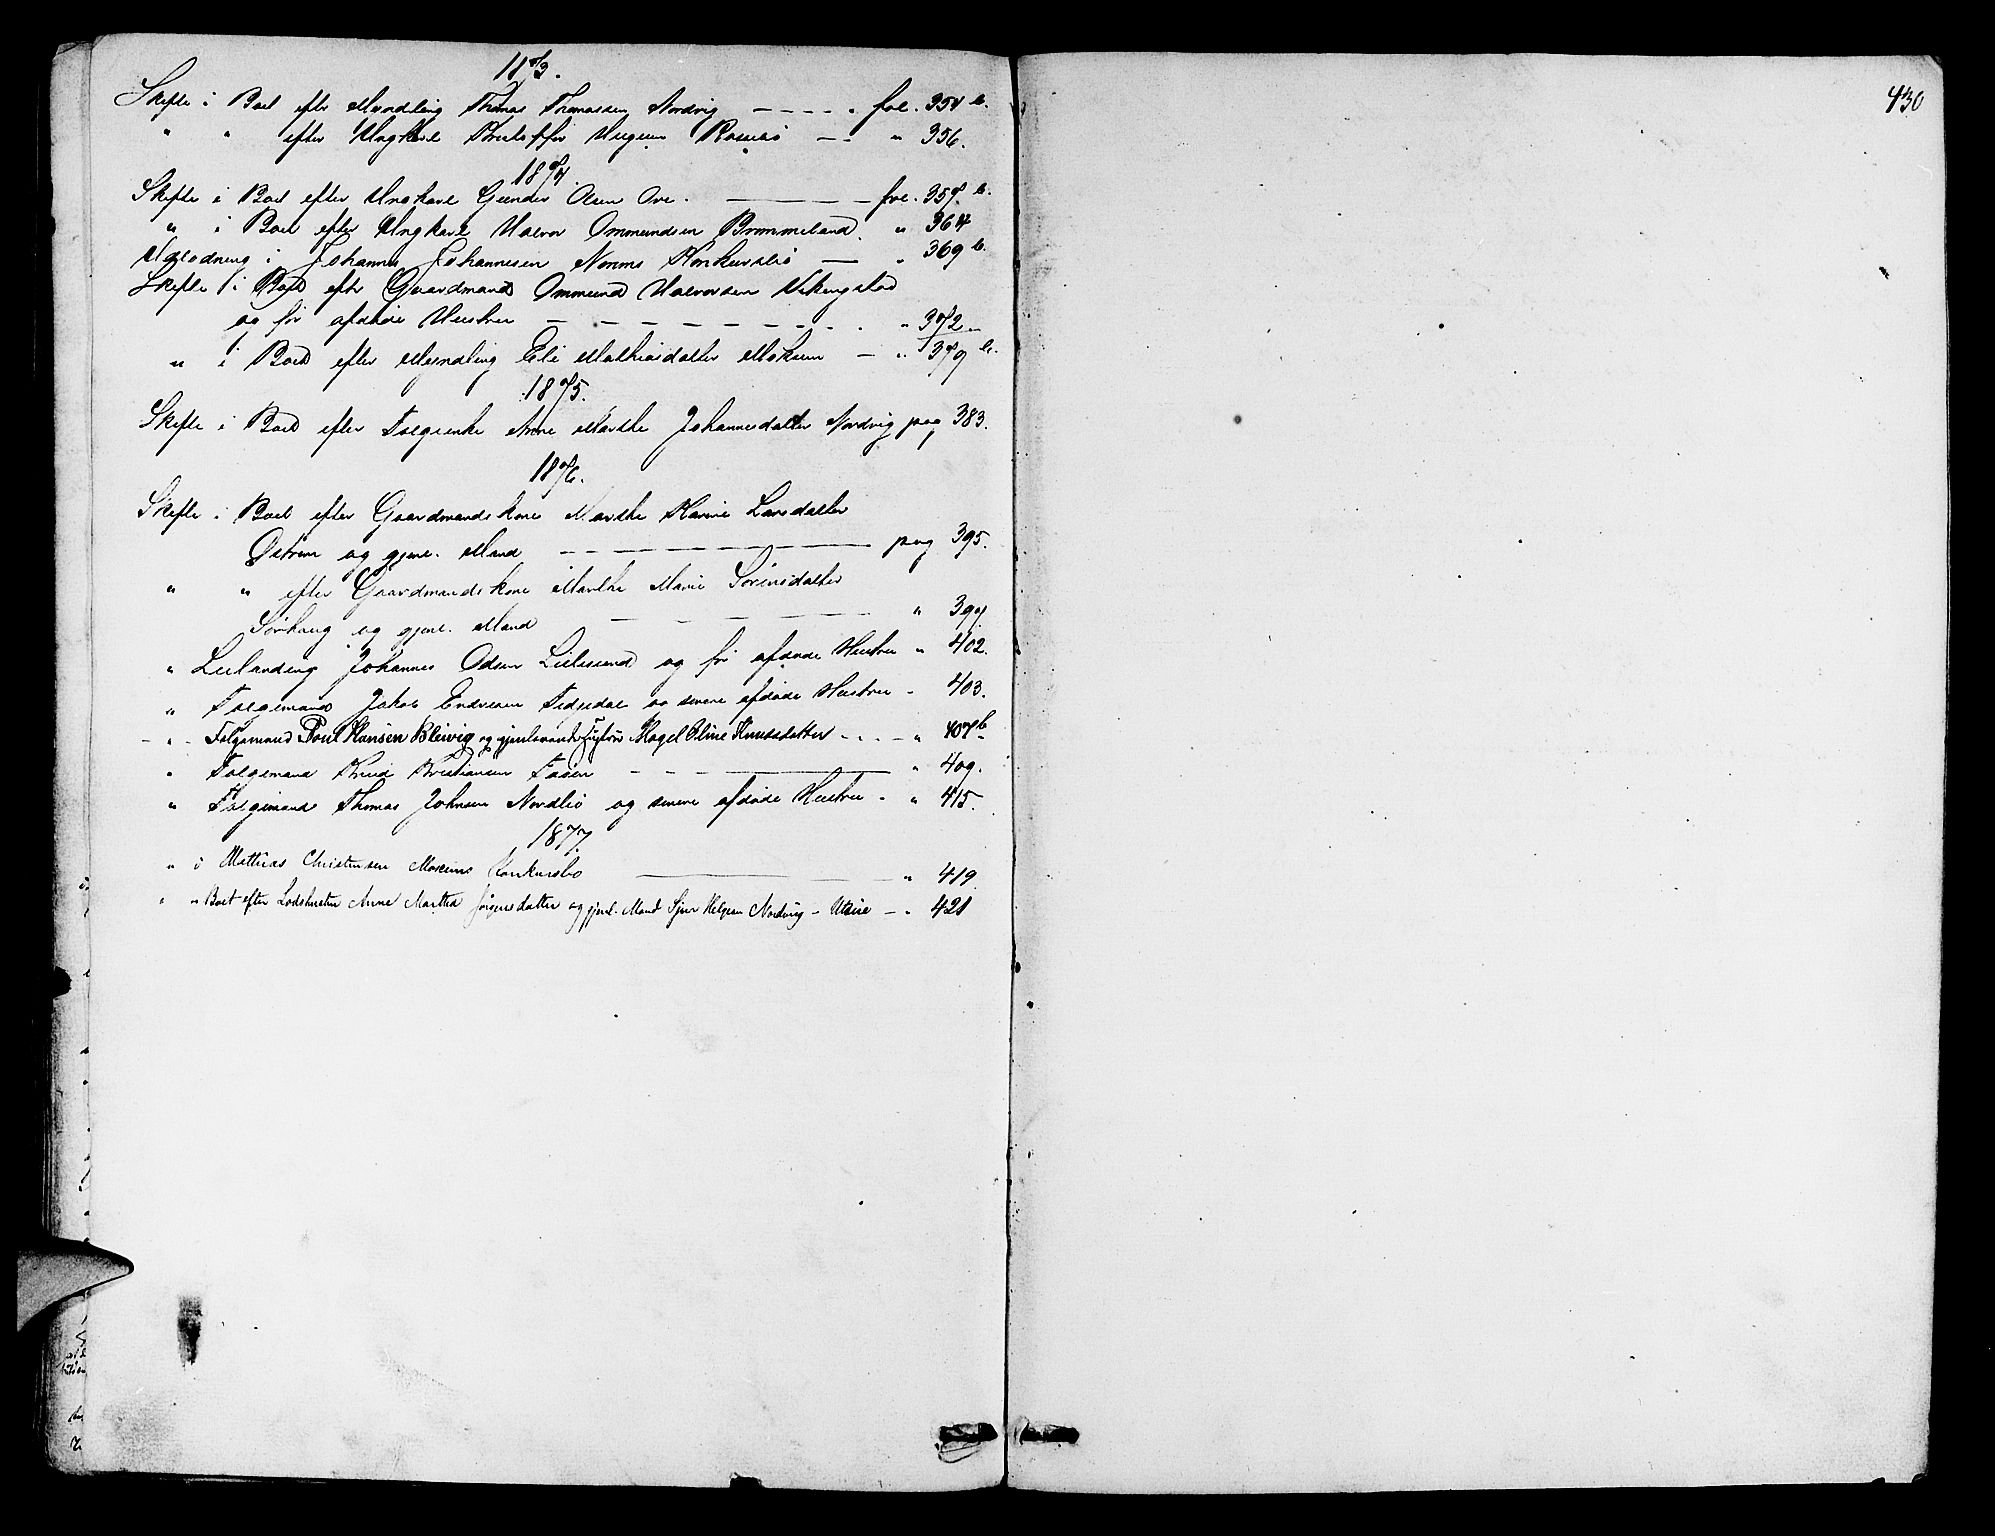 1873.
Skifte i Boet efter Myndling Thomas Thomassen Nordvig — — — — . fol. 354 b.
" " efter Ungkarl Kristoffer Haugen — — " 356.
1874.
Skifte i Boet efter Ungkarl Gunder Olsen — — — — fol. 357 b.
" i Boet efter Ungkarl Halvor Ommundsen Brommeland. " 364
Udlodning i Johannes Johannesen Konkursbo — " 369 b.
Skifte i Boet efter Gaardmand Ommund Halvorsen Vikingstad
og før afdøde Hustru — — — — — — — — — . " 372
" i Boet efter Myndling Eli Mathiasdatter — " 379 b.
1875.
Skifte i Boet efter Folgeenke Anne Marthe Johannesdatter Nordvig pag 383.
1876.
Skifte i Boet efter Gaardmandskone Marthe Karine Larsdatter
Østrem og gjenl. Mand — — — — — — pag 395.
" " efter Gaardmandskone Marthe Marie Sørensdatter
Sørhaug og gjenl. Mand — — — — — " 399.
" Leilænding Johannes Odsen Lillesund og før afdøde Hustru " 402.
" Folgemand Jakob Endresen og senere afdøde Hustru " 403.
- " - Folgemand Poul Hansen Bleivig og gjenlevende Hustru Magel Oline Knudsdatter - . . - " 407 b
" Folgemand Knud Kristiansen Fosen — — — — " 409.
" Folgemand Thomas Johnsen Nordbø og senere afdøde Hustru . " 415.
1877.
" i Mathias Christensen Konkursbo — — — " 419.
" " Boet efter Anne Martha Jørgensdatter og gjenl. Mand Sjur Helgesen Nordvig - Utsire — " 421
430